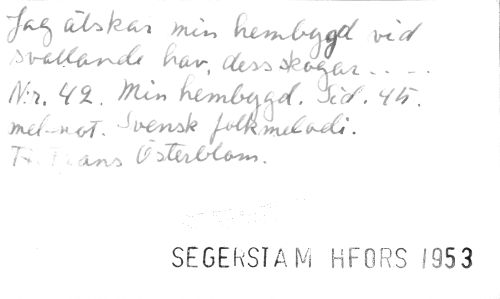 Jag älskar min hembygd vid
svallande hav, dess skogar . . . .
N:r. 42. Min hembygd. Sid. 45.
mel-not. Svensk folkmelodi.
Frans Österblom.
SEGERSTAM HFORS 1953